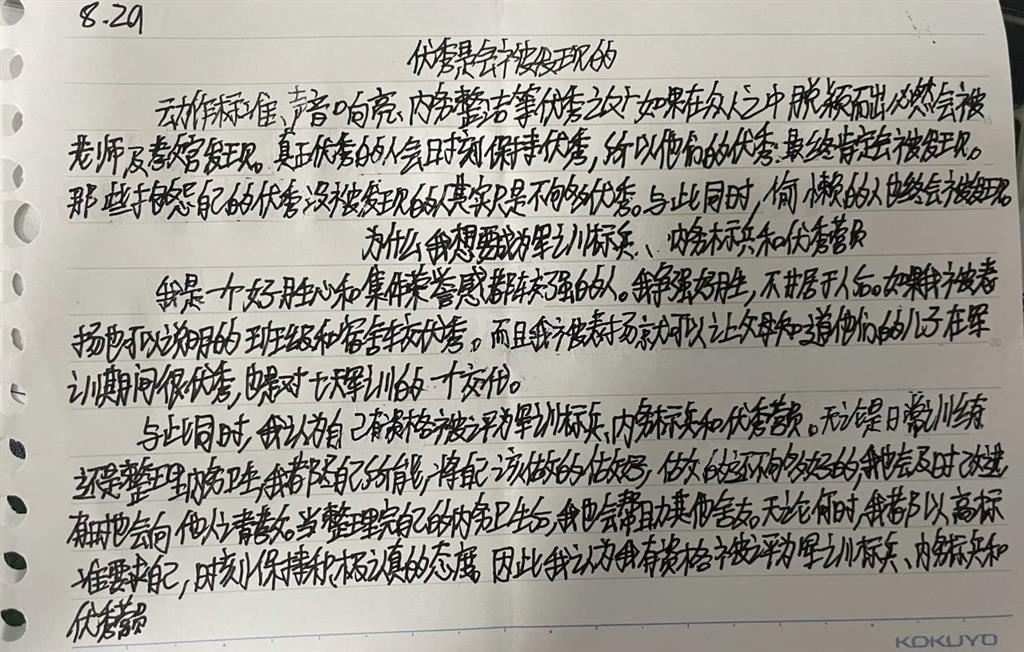 8.29
优秀是会被发现的
动作标准、声音响亮、内务整洁等优秀之处如果在众人之中脱颖而出必然会被
老师及教官发现。真正优秀的人会时刻保持优秀，所以他们的优秀最终肯定会被发现。
那些抱怨自己的优秀没被发现的人其实只是不够优秀。与此同时，偷懒的人也终会被发现。
为什么我想要成为军训标兵、内务标兵和优秀营员
我是一个好胜心和集体荣誉感都较强的人。我争强好胜，不甘居于人后。如果我被表
扬也可以说明的班级和宿舍较优秀。而且我被表扬就可以让父母知道他们的儿子在军
训期间很优秀，也是对七天军训的一个交代。
与此同时，我认为自己有资格被评为军训标兵、内务标兵和优秀营员。无论是日常训练
还是整理内务卫生，我都尽自己所能，将自己该做的做好，做的还不够好的，我也会及时改进
有时也会向他人请教。当整理完自己的内务卫生后，我也会帮助其他舍友。无论何时，我都以高标
准要求自己，时刻保持积极认真的态度 因此我认为我有资格被评为军训标兵、内务标兵和
优秀营员
KOKUYO